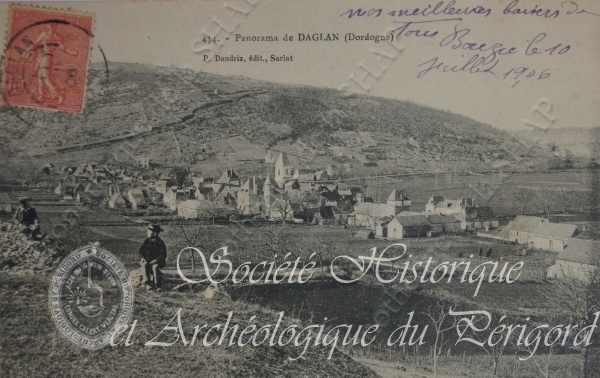 414. - Panorama de DAGLAN (Dordogne)
P. Daudrix, édit., Sarlat
nos meilleurs baisers de
tous
le 10
juillet 1906
Société Historique
et Archéologique du Périgord